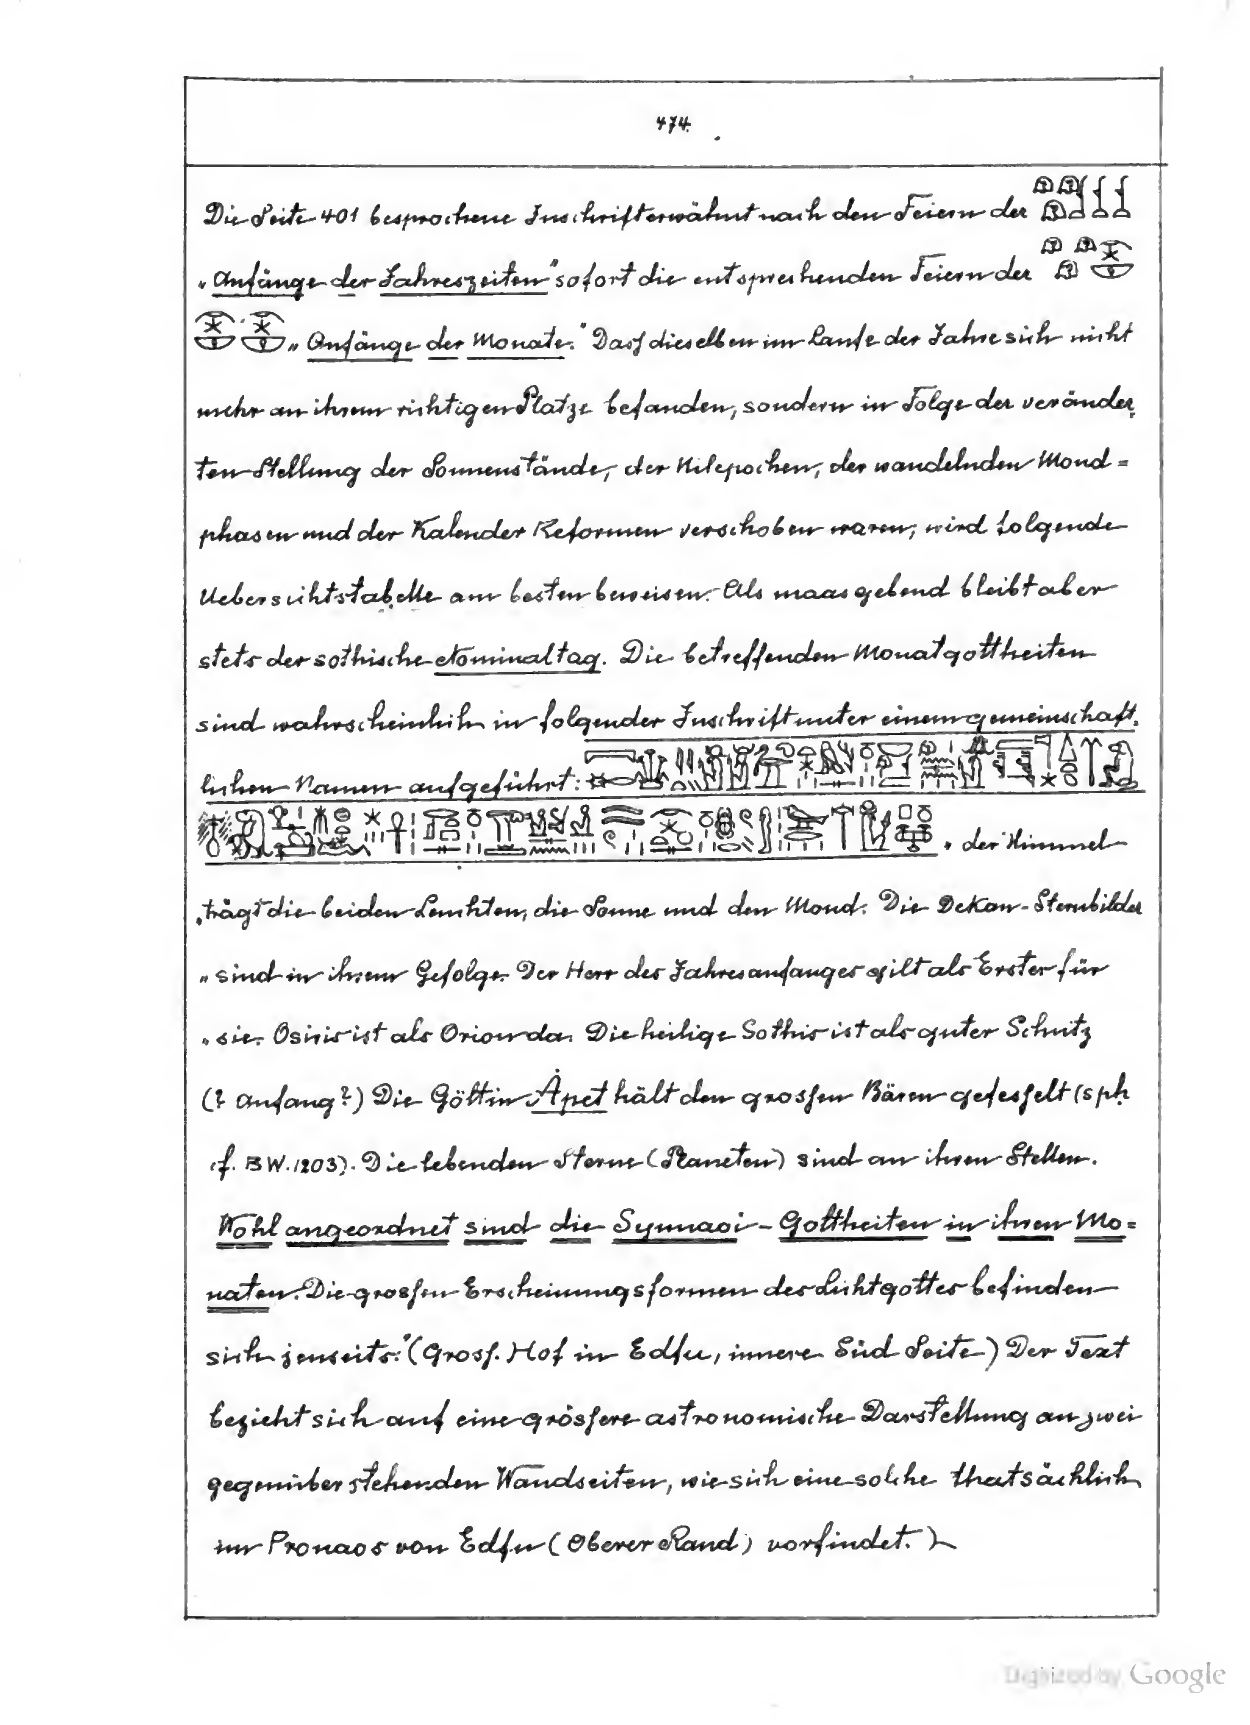 474.
Die Seite 401 besprochene Inschrift erwähnt nach den Feiern der
„Anfänge der Jahreszeiten" sofort die entsprechenden Feiern der
„Anfänge der Monate." Dass dieselben im Laufe der Jahre sich nicht
mehr an ihrem richtigen Platze befanden, sondern in Folge der veränder,
ten Stellung der Sonnenstände, der Nilepochen, der wandelnden Mond=
phasen und der Kalender Reformen verschoben waren, wird folgende
Uebersichtstabelle am besten beweisen. Als maasgebend bleibt aber
stets der sothische Nominaltag. Die betreffenden Monatgottheiten
sind wahrscheinlich in folgender Inschrift unter einem gemeinschaft,
lichen Namen aufgeführt:
„der Himmel
„trägt die beiden Leuchten, die Sonne und den Mond. Die Dekan-Sternbilder
„sind in ihrem Gefolge. Der Herr des Jahresanfanges gilt als Erster für
„sie. Osiris ist als Orion da. Die heilige Sothis ist als guter Schutz
(? Anfang?) Die Göttin Âpet hält den grossen Bären gefesselt (sph
cf. BW. 1203). Die lebenden Sterne (Planeten) sind an ihren Stellen.
Wohl angeordnet sind die Synnaoi-Gottheiten in ihren Mo=
naten. Die grossen Erscheinungsformen des Lichtgottes befinden
sich jenseits." (Gross. Hof in Edfu, innere Süd Seite) Der Text
bezieht sich auf eine grössere astronomische Darstellung an zwei
gegenüber stehenden Wandseiten, wie sich eine solche thatsächlich
im Pronaos von Edfu (Oberer Rand) vorfindet.)
Digitized by Google